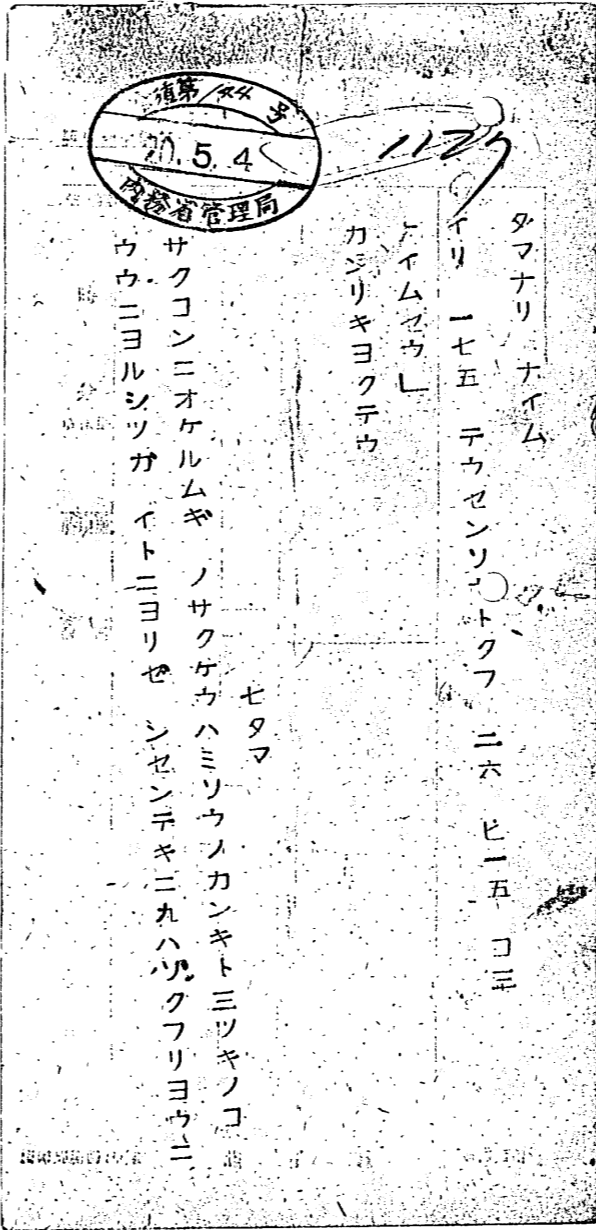 第144号
20.5.4
内務省管理局
タマナリ ナイム
イリ 一七五 テウセンソ トクフ 二六 ヒ一五 コ三
ナイムセウ」
カンリキヨクテウ
七タマ
サクコンニオケルムギ ノサクケウハミソウノカンキト三ツキノコ
ウウニヨルシツガ イトニヨリゼ シセンテキニ九ハソクフリヨウニ